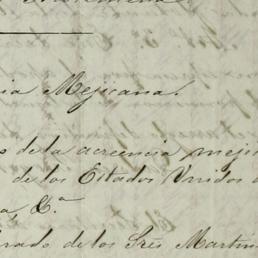 ia Mejicana.
s de la acreencia meji
de los Estados Unidos
a, &.a
rado de los Sres Martin